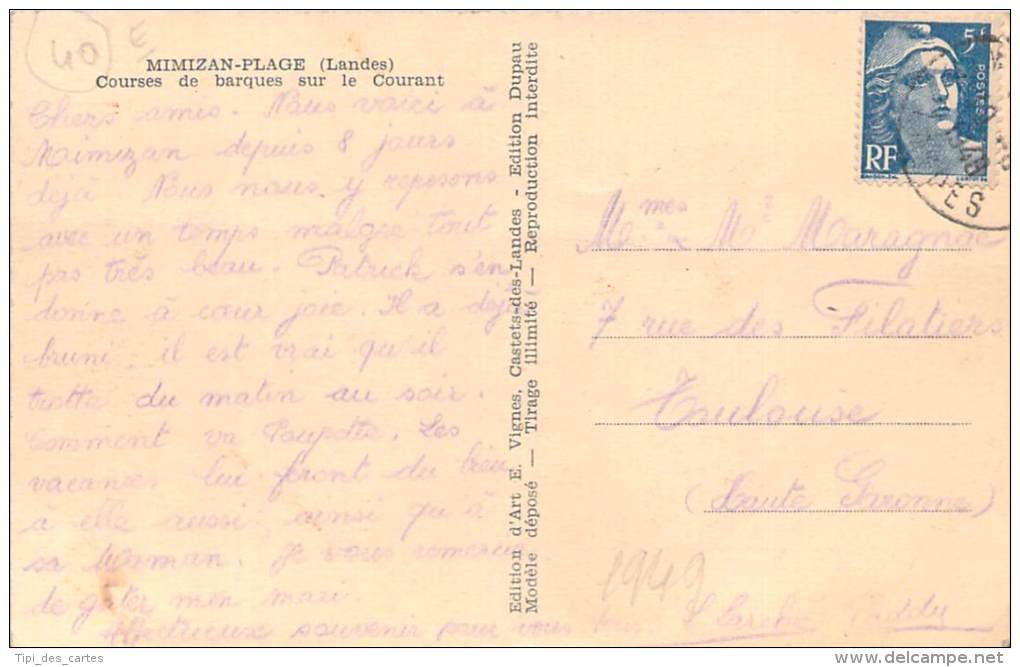 40
MIMIZAN-PLAGE (Landes)
Courses de barques sur le Courant
Chers amis. Nous voici à
Mimizan depuis 8 jours
déjà. Nous nous y reposons
avec un temps malgré tout
pas très beau. Patrick s'en
donne à cœur joie. Il a déjà
bruni, il est vrai qu'il
trotte du matin au soir.
Comment va Poupette. Les
vacances lui feront du bien
à elle aussi ainsi qu'à
sa Maman. Je vous remercie
de gâter mon mari.
Affectueux souvenir pour vous tous.
Edition d'Art E. Vignes, Castets-des-Landes - Edition Dupau
Modèle déposé — Tirage illimité — Reproduction interdite
5f
POSTES
RF
DES
Mmes & Mr Maragnac
7 rue des Filatiers
Toulouse
(Haute Garonne)
1949
Tipi_des_cartes
www.delcampe.net